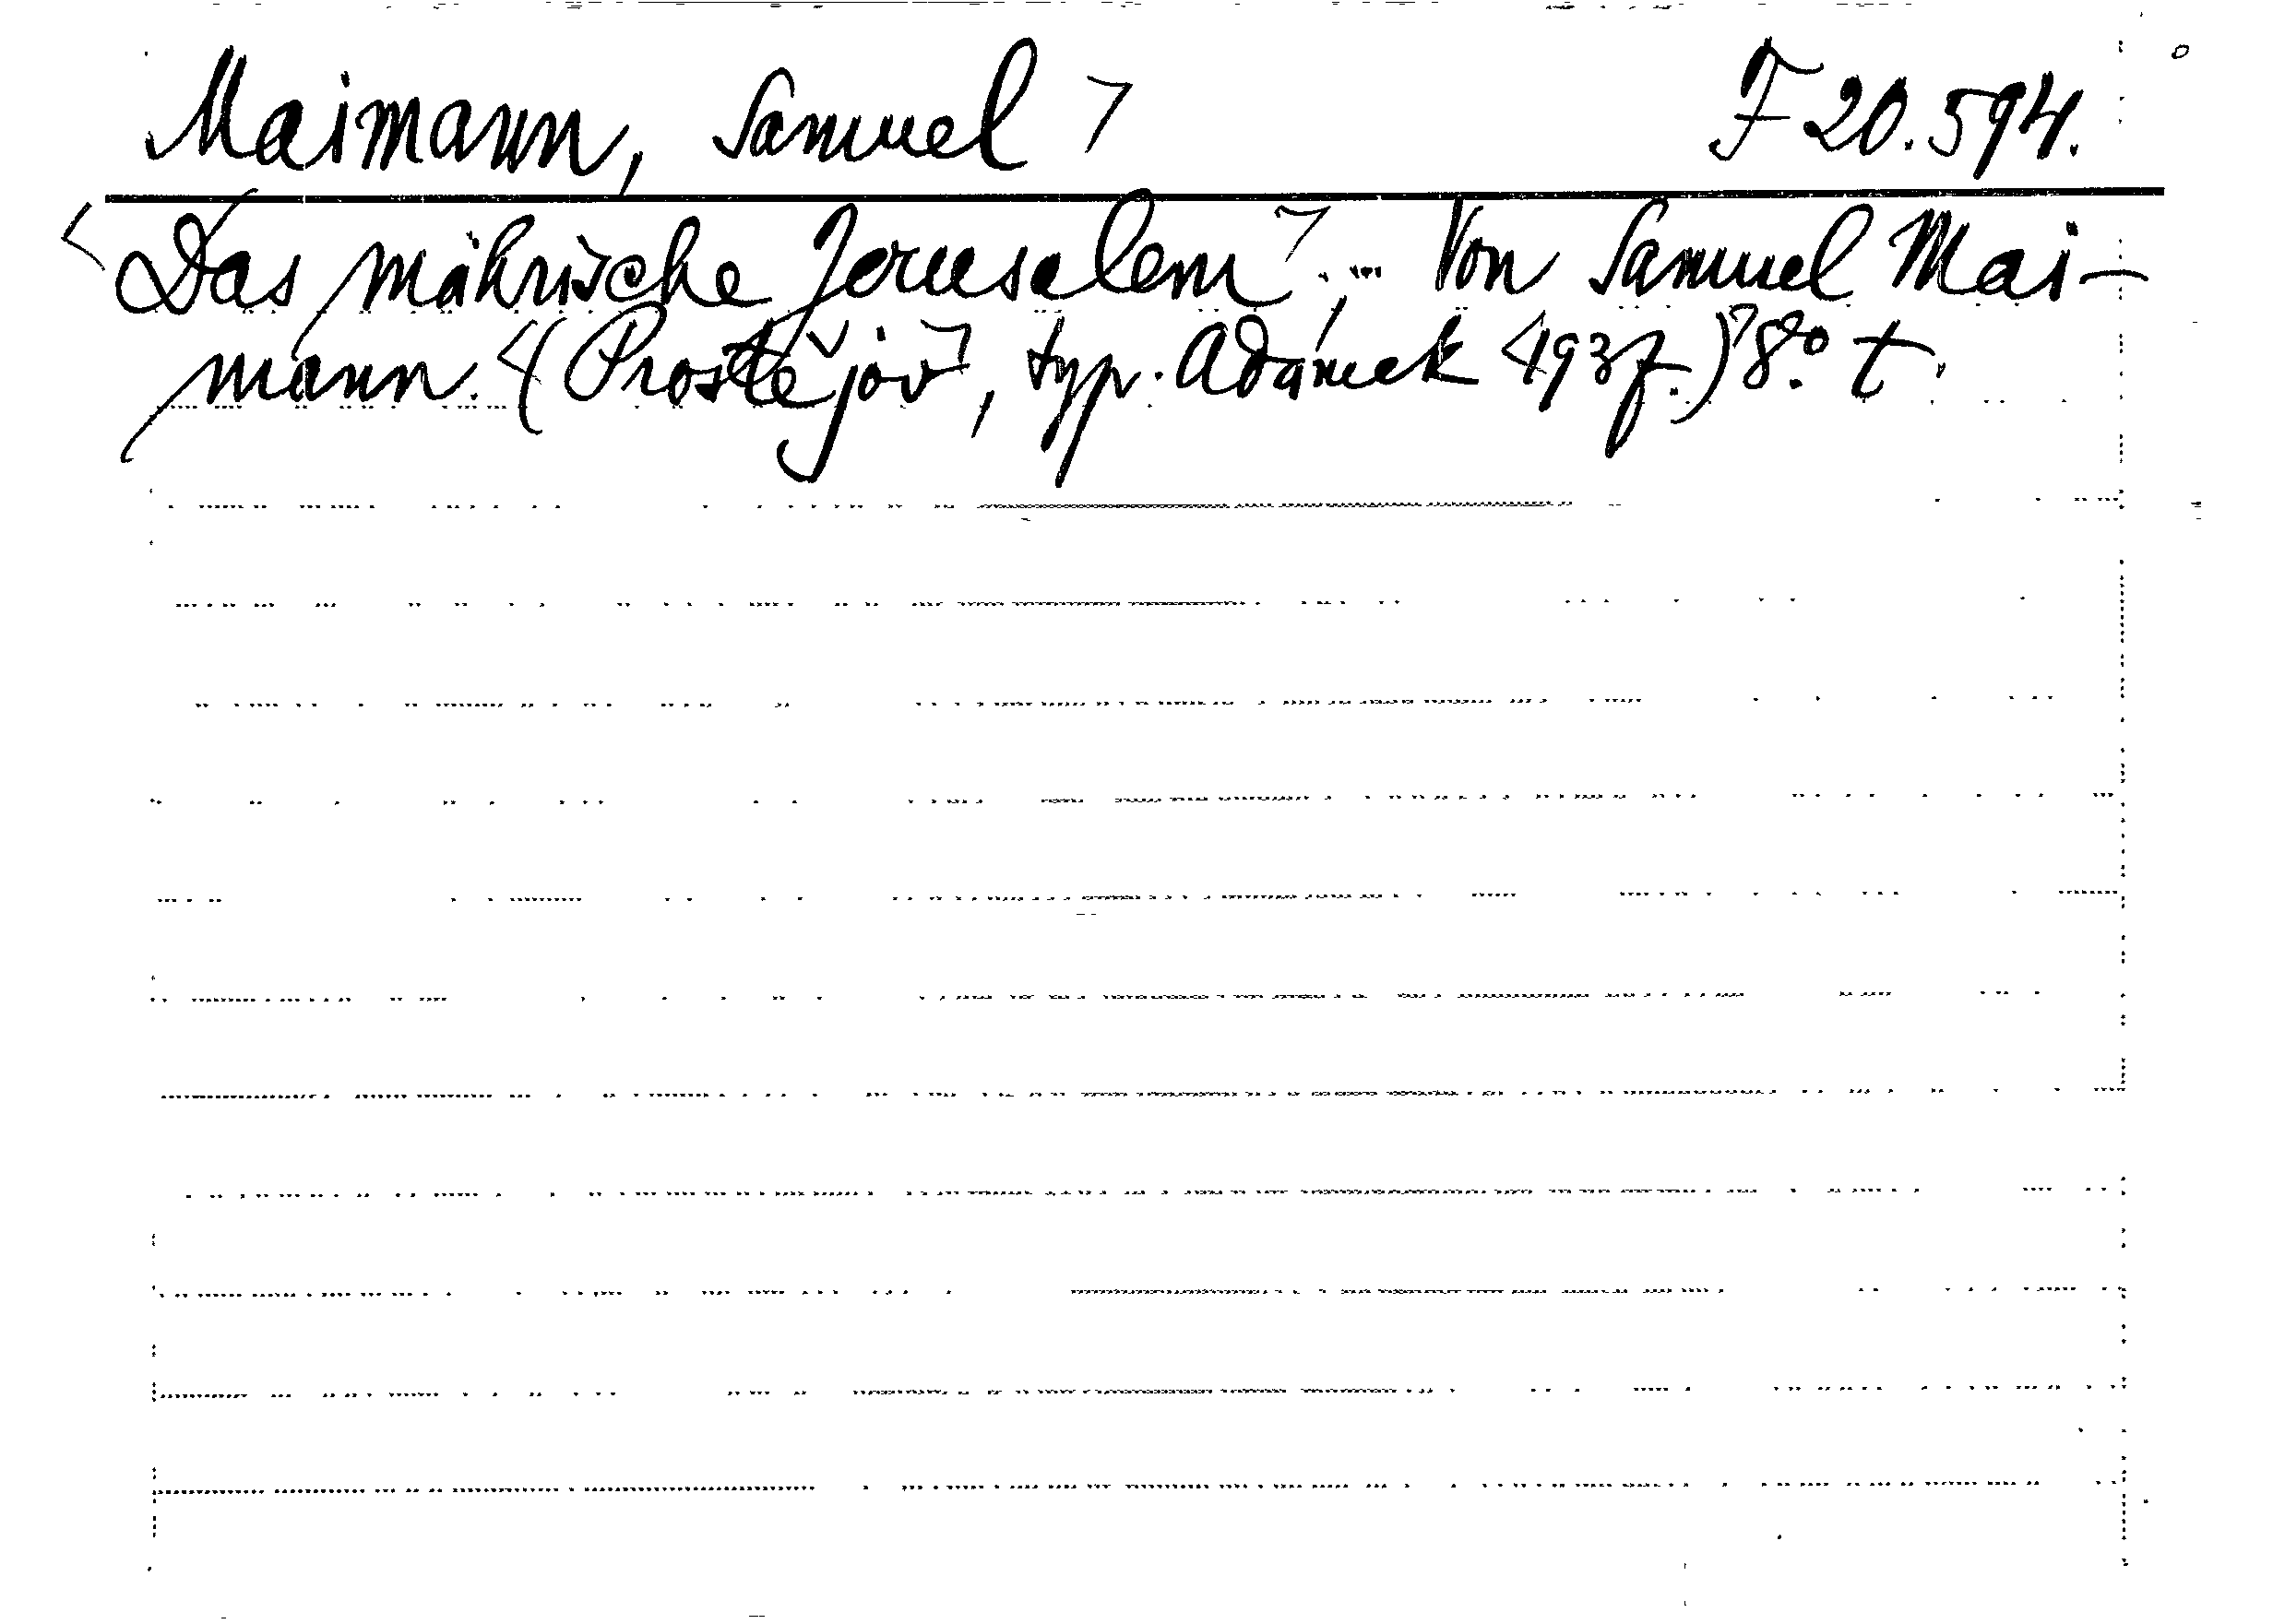 Maimann, Samuel ⁊ F 20.594.
<Das mährische Jerusalem⁊. ... Von Samuel Mai-
mann. <(Prostějov⁊, typ. Adámek <1937.)⁊ 8° t.